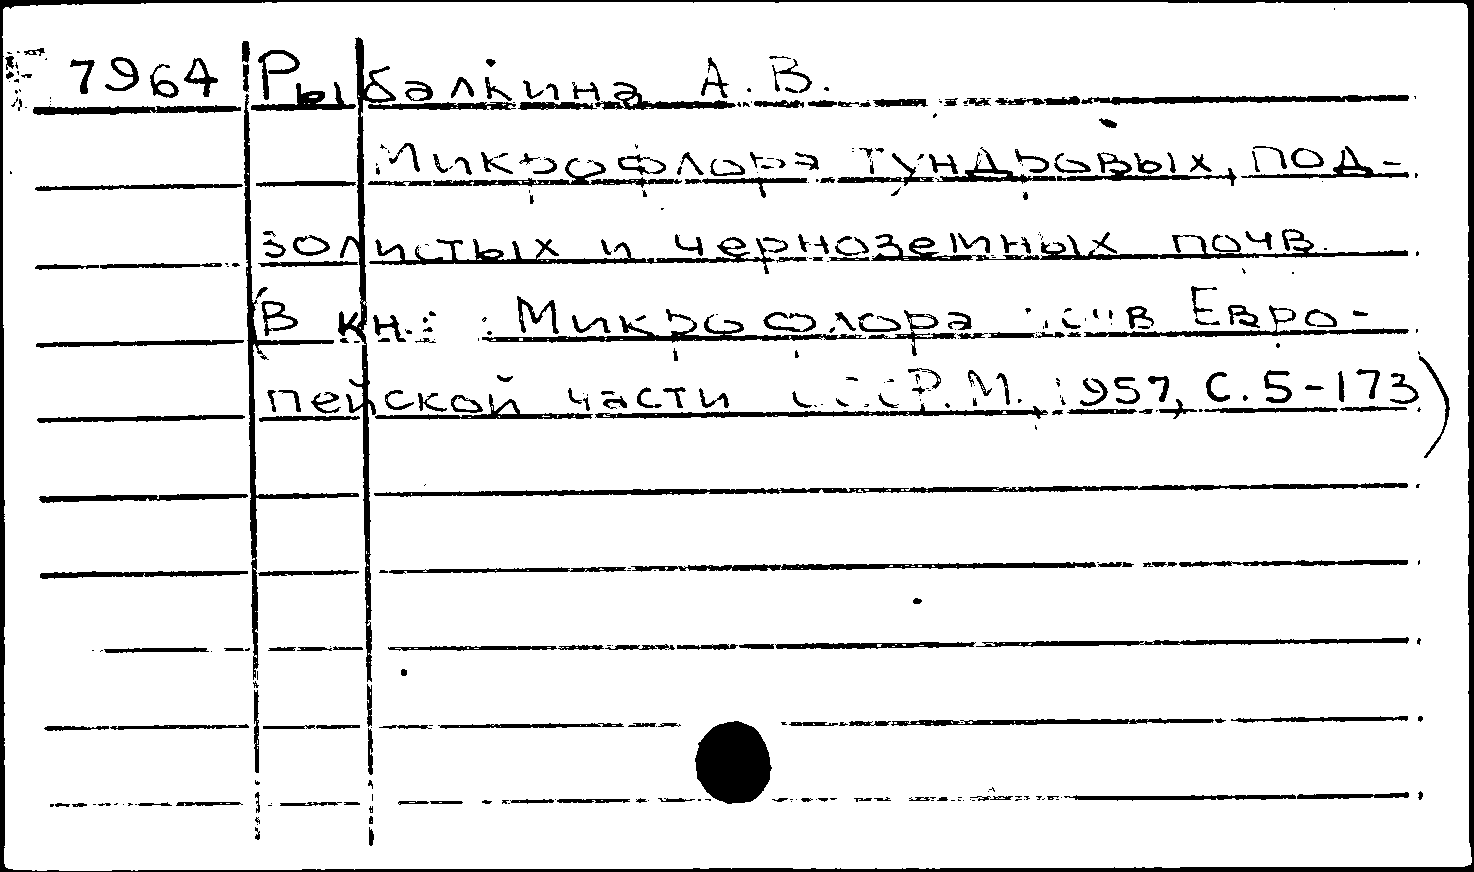 7964 Рыбалкина А.В.
Микрофлора тундровых, под-
золистых и черноземных почв.
(В кн.: Микрофлора почв Евро-
пейской части СССР. М., 1957, С. 5-173)